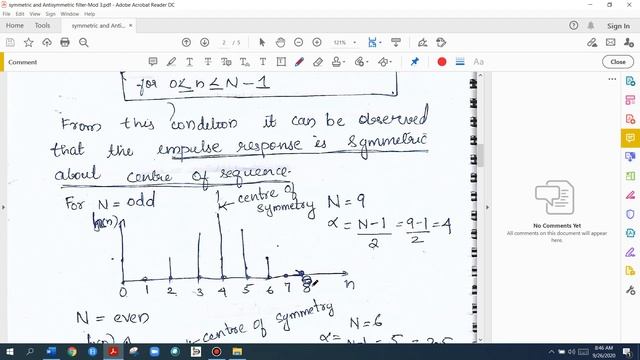 symmetric and Antisymmetric filter-Mod 3.pdf - Adobe Acrobat Reader DC
File Edit View Sign Window Help
Home Tools symmetric and Anti... × Sign In
2 / 5 121%
Comment Aa Close
for 0≤n≤N-1
From this condition it can be observed
that the impulse response is symmetric
about centre of sequence.
For N = odd
centre of
symmetry
N = 9
h(n)
α = N-1/2 = 9-1/2 = 4
0 1 2 3 4 5 6 7 8 n
N = even
centre of symmetry
N = 6
No Comments Yet
All comments on this document will appear here.
8:46 AM
9/26/2020